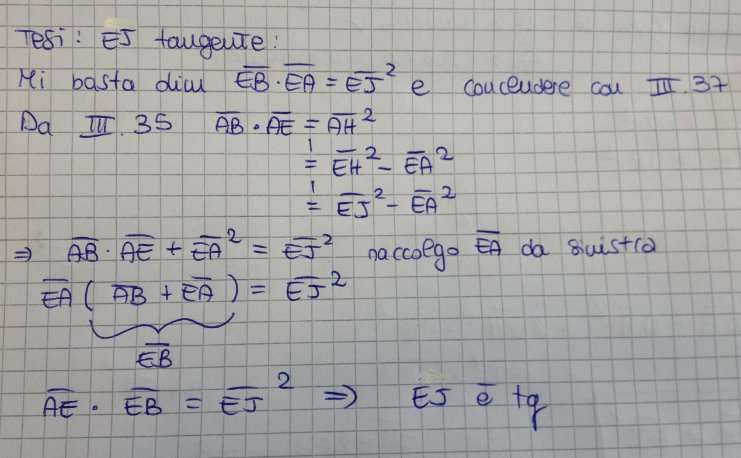 Tesi: EJ tangente:
Mi basta dim E̅B̅ · E̅A̅ = E̅J̅² e concludere con III.37
Da III.35 A̅B̅ · A̅E̅ = A̅H̅²
= E̅H̅² - E̅A̅²
= E̅J̅² - E̅A̅²
⇒ A̅B̅ · A̅E̅ + E̅A̅² = E̅J̅² raccolgo E̅A̅ da sinistra
E̅A̅ ( A̅B̅ + E̅A̅ ) = E̅J̅²
E̅B̅
A̅E̅ · E̅B̅ = E̅J̅² ⇒ EJ è tg